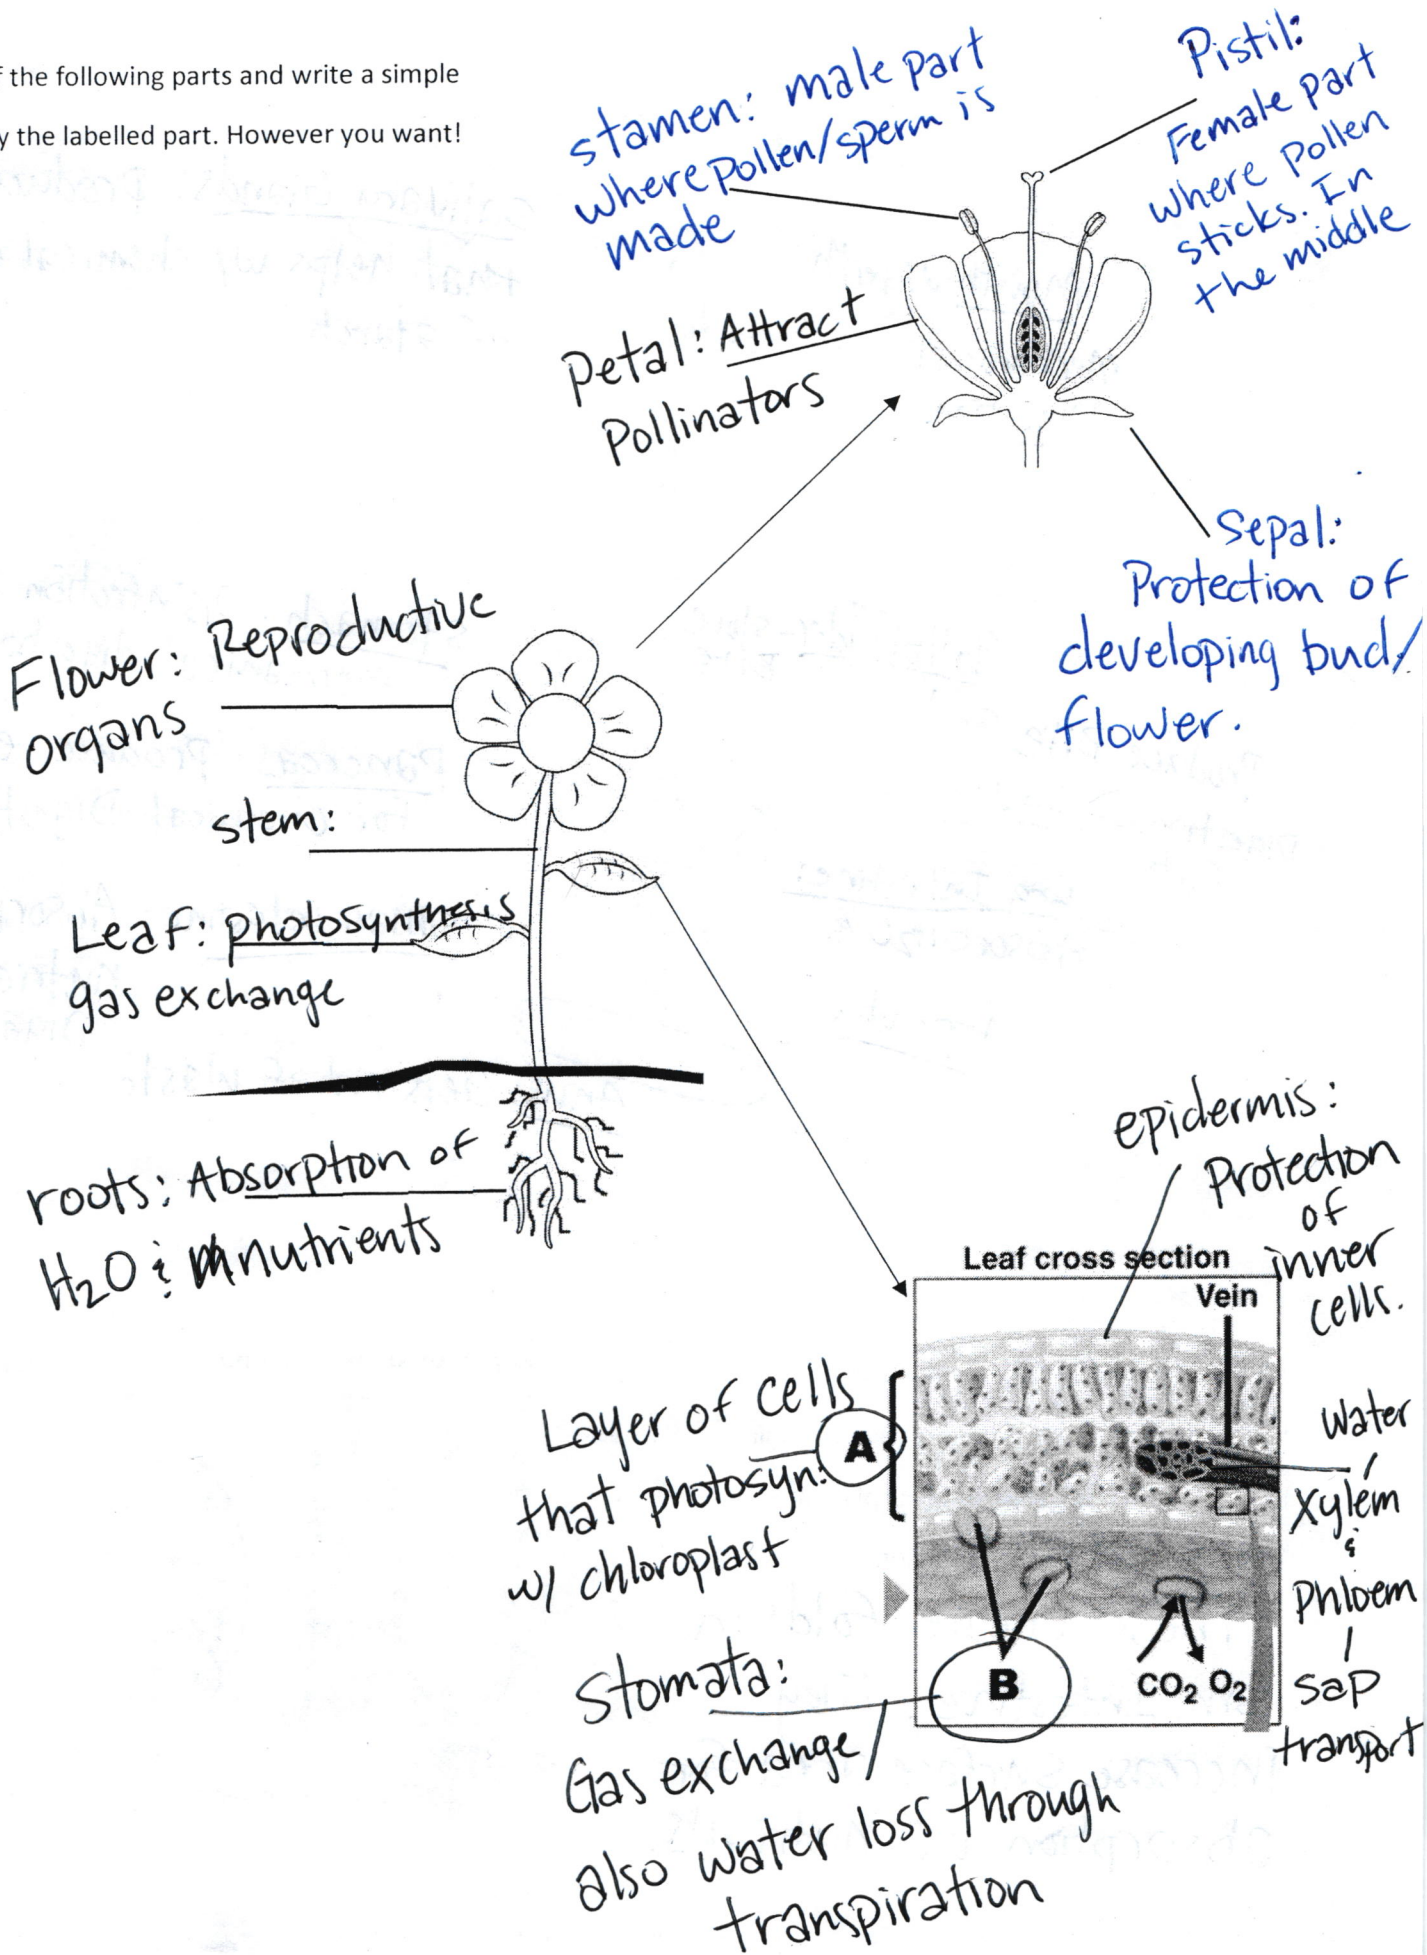 f the following parts and write a simple
y the labelled part. However you want!
stamen: male part
where pollen/sperm is
made
Pistil:
Female part
where pollen
sticks. In
the middle
Petal: Attract
Pollinators
Sepal:
Protection of
developing bud/
flower.
Flower: Reproductive
organs
stem:
Leaf: photosynthesis
gas exchange
roots: Absorption of
H₂O & nutrients
epidermis:
Protection
of
inner
cells.
Leaf cross section
Vein
Layer of cells
that photosyn.
w/ chloroplast
A
Water
Xylem
&
Phloem
Sap
transport
Stomata:
Gas exchange/
also water loss through
transpiration
B
CO₂ O₂